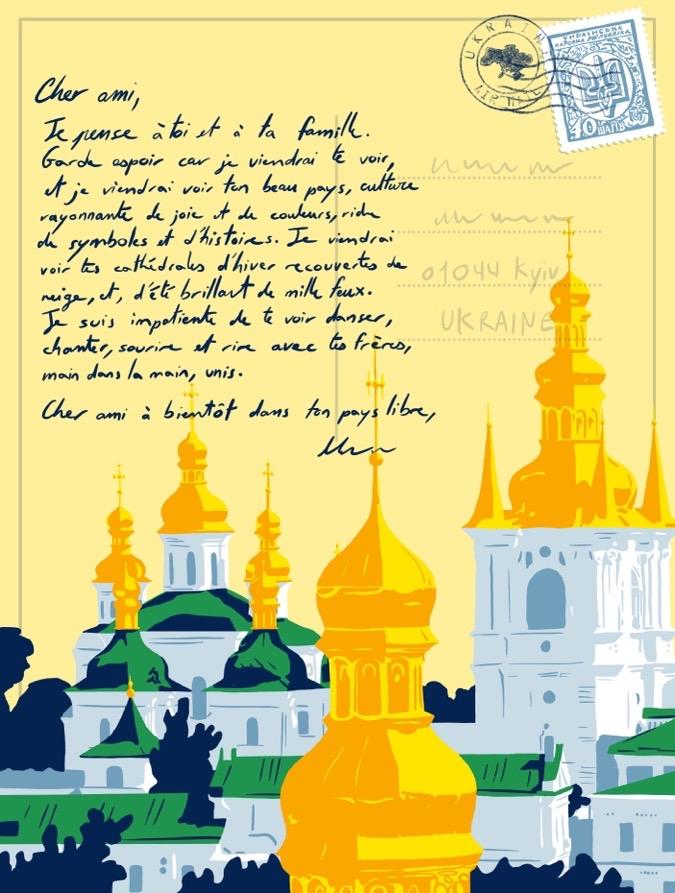 Cher ami,
Je pense à toi et à ta famille.
Garde espoir car je viendrai te voir,
et je viendrai voir ton beau pays, culture
rayonnante de joie et de couleurs, riche
de symboles et d'histoires. Je viendrai
voir tes cathédrales d'hiver recouvertes de
neige, et, d'été brillant de mille feux.
Je suis impatiente de te voir danser,
chanter, sourire et rire avec tes frères,
main dans la main, unis.
Cher ami à bientôt dans ton pays libre,
UKRAINE
AIR MAIL
УКРАЇНСЬКА
НАРОДНА РЕСПУБЛІКА
40 ШАГІВ
01044 Kyiv
UKRAINE